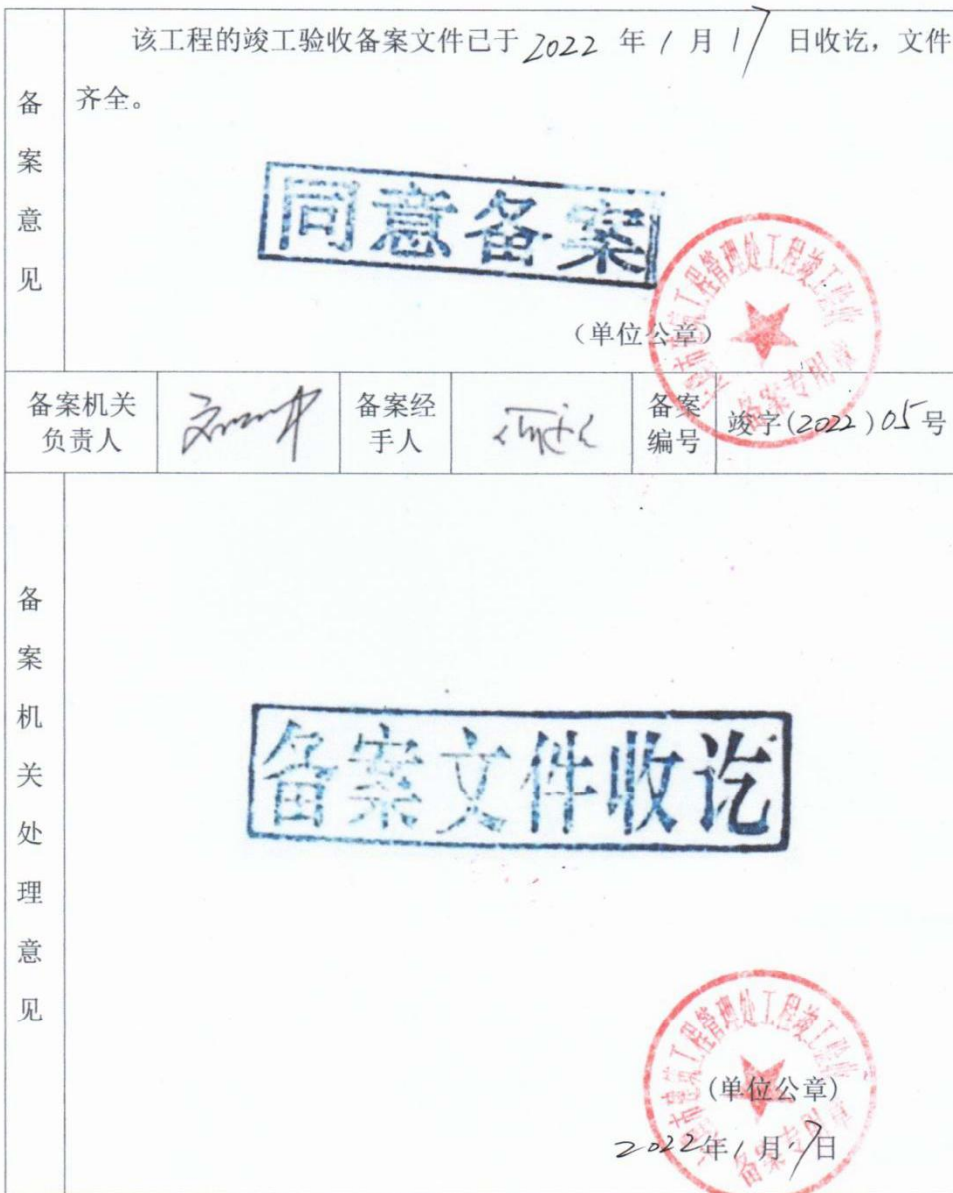 备案意见
该工程的竣工验收备案文件已于2022年1月17日收讫，文件
齐全。
同意备案
（单位公章）
市建筑工程管理处工程竣工验收
备案专用章
备案机关
负责人
备案经
手人
备案
编号
竣字(2022)05号
备案机关处理意见
备案文件收讫
市建筑工程管理处工程竣工验收
备案专用章
(单位公章)
2022年1月17日